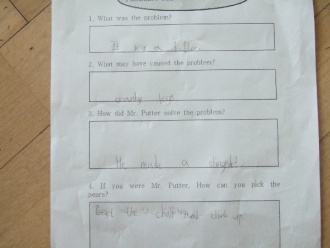 1. What was the problem?
2. What may have caused the problem?
cranky legs
3. How did Mr. Putter solve the problem?
He made a slingshot!
4. If you were Mr. Putter, How can you pick the
pears?
the chair and climb up